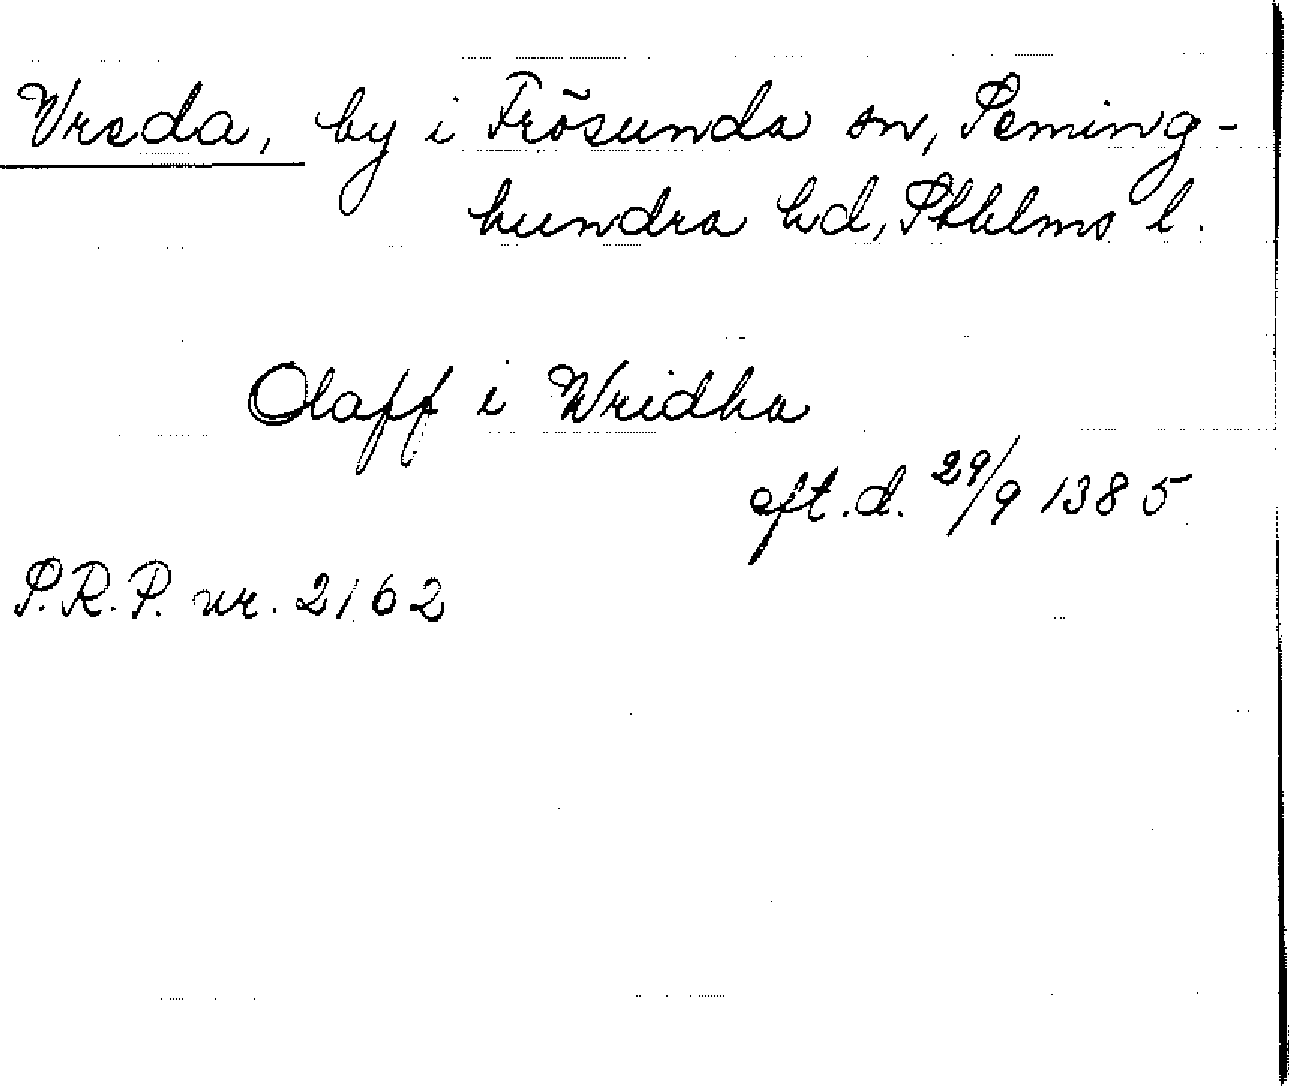 Vreda, by i Frösunda sn, Seming-
hundra hd, Sthlms l.
Olaff i Wridha
eft. d. 29/9 1385
S.R.P. nr. 2162